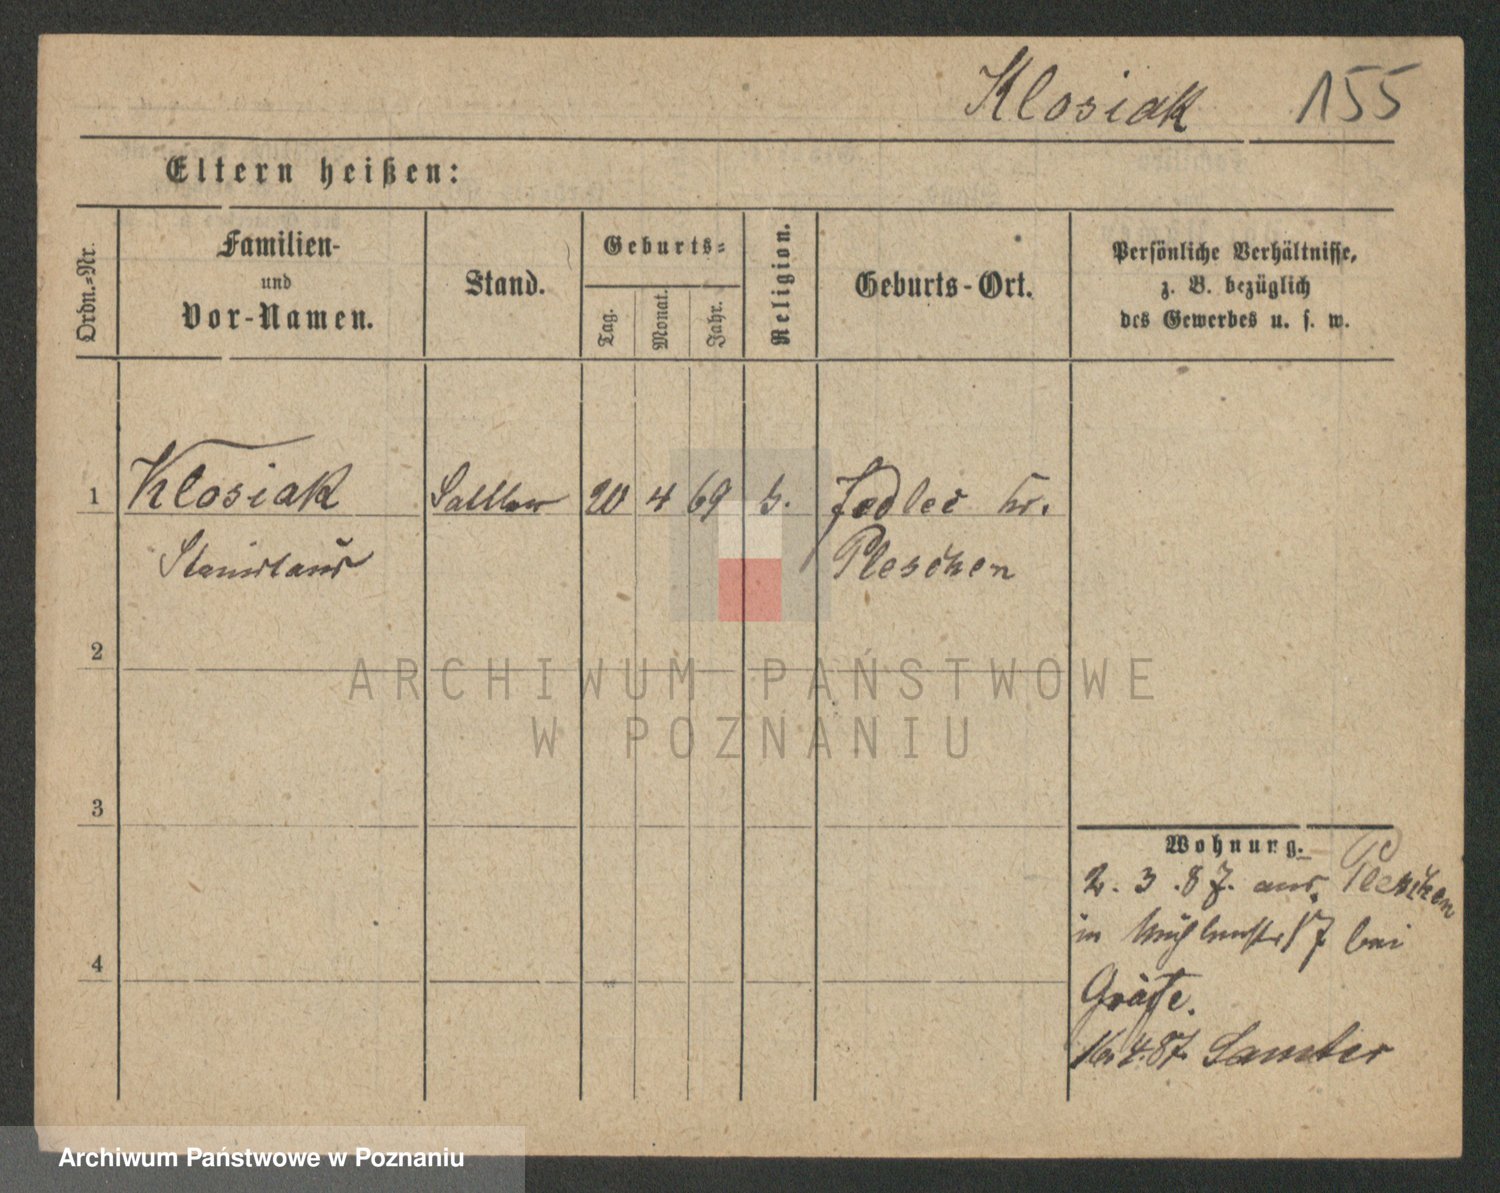 Klosiak 155
Eltern heißen:
Ordn.-Nr.
Familien-
und
Vor-Namen.
Stand.
Geburts-
Tag.
Monat.
Jahr.
Religion.
Geburts-Ort.
Persönliche Verhältnisse,
z. B. bezüglich
des Gewerbes u. s. w.
1 Klosiak Sattler 20 4 69 k. Jedlec Kr.
Stanislaus Pleschen
2
3
4
Wohnung.
2. 3. 87. aus Pleschen
in Mühlenstr 17 bei
Gräfe.
16. 4. 87. Samter
ARCHIWUM PAŃSTWOWE
W POZNANIU
Archiwum Państwowe w Poznaniu